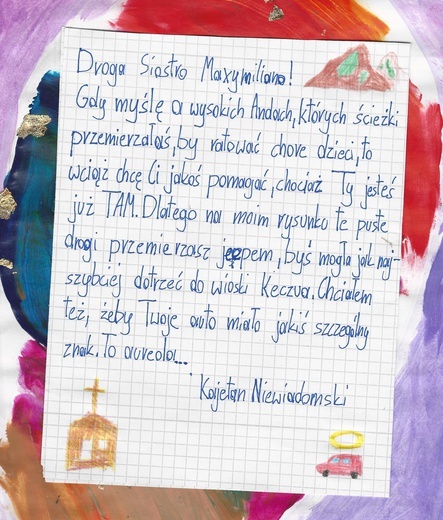 Droga Siostro Maxymiliano!
Gdy myślę o wysokich Andach, których ścieżki
przemierzałaś, by ratować chore dzieci, to
wciąż chcę Ci jakoś pomagać, chociaż Ty jesteś
już TAM. Dlatego na moim rysunku te puste
drogi przemierzasz jeepem, byś mogła jak naj-
szybciej dotrzeć do wioski Keczua. Chciałem
też, żeby Twoje auto miało jakiś szczególny
znak. To aureola...
Kajetan Niewiadomski